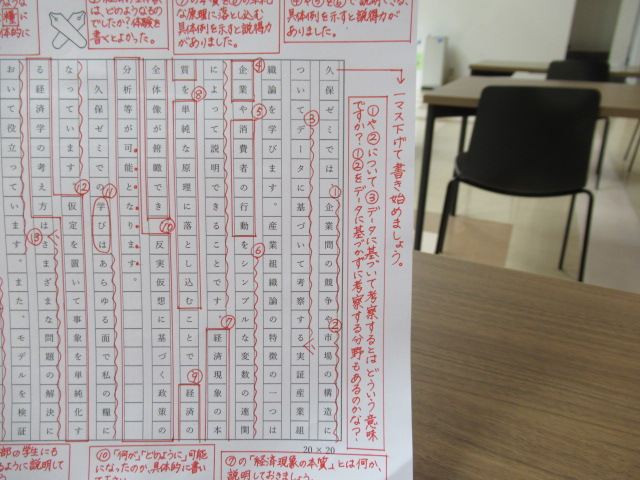 一マス下げて書き始めましょう。
①や②について③データに基づいて考察するとはどういう意味
ですか？①②をデータに基づかずに考察する分野もあるのかな？
でしたか？体験を
書くとよかった。
な原理に落とし込む
具体例を示すと説得力
がありました。
具体例を示すと説得力
がありました。
久保ゼミでは①企業間の競争や②市場の構造に
ついて③データに基づいて考察する実証産業組
織論を学びます。産業組織論の特徴の一つは
④企業や⑤消費者の行動を⑥シンプルな変数の連関
によって説明できる ⑦経済現象の本
質を⑧単純な原理に落とし込むことで⑨経済の
全体像が俯瞰でき⑩反実仮想に基づく政策の
分析等が可能となります。
久保ゼミでの⑪学びはあらゆる面で私の糧に
なっています。⑫仮定を置いて事象を単純化す
る経済学の考え方は⑬さまざまな問題の解決に
おいて役立っています。また、モデルを検証
20×20
⑦の「経済現象の本質」とは何か、
説明しておきましょう。
⑩「何が」「どのように」可能
になったのか、具体的に書い
部の学生にも
るように説明して